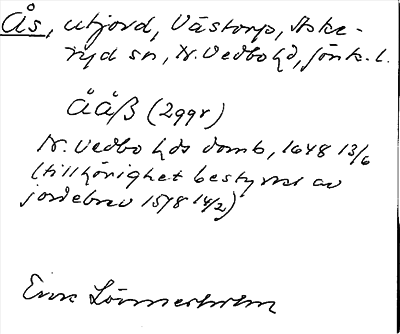 Ås, utjord, Västorp, Aske-
ryd sn, N. Vedbo hd, Jönk. l.
ÅÅß (299r)
N. Vedbo hds domb, 1648 13/6
(tillhörighet bestyrkt av
jordebrev 1518 14/2)
Erik Lönnerholm